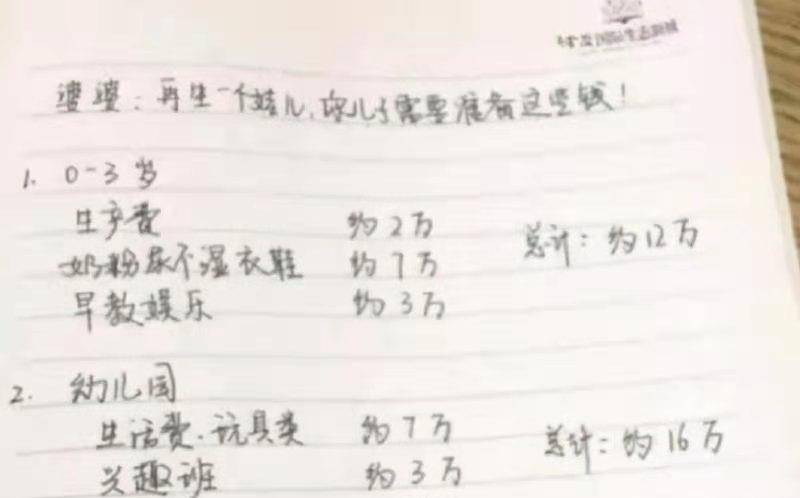 国际生态新城
婆婆：再生一个娃儿，你儿子需要准备这些钱！
1. 0-3岁
生产费 约2万
奶粉尿不湿衣鞋 约7万 总计：约12万
早教娱乐 约3万
2. 幼儿园
生活费、玩具类 约7万 总计：约16万
兴趣班 约3万